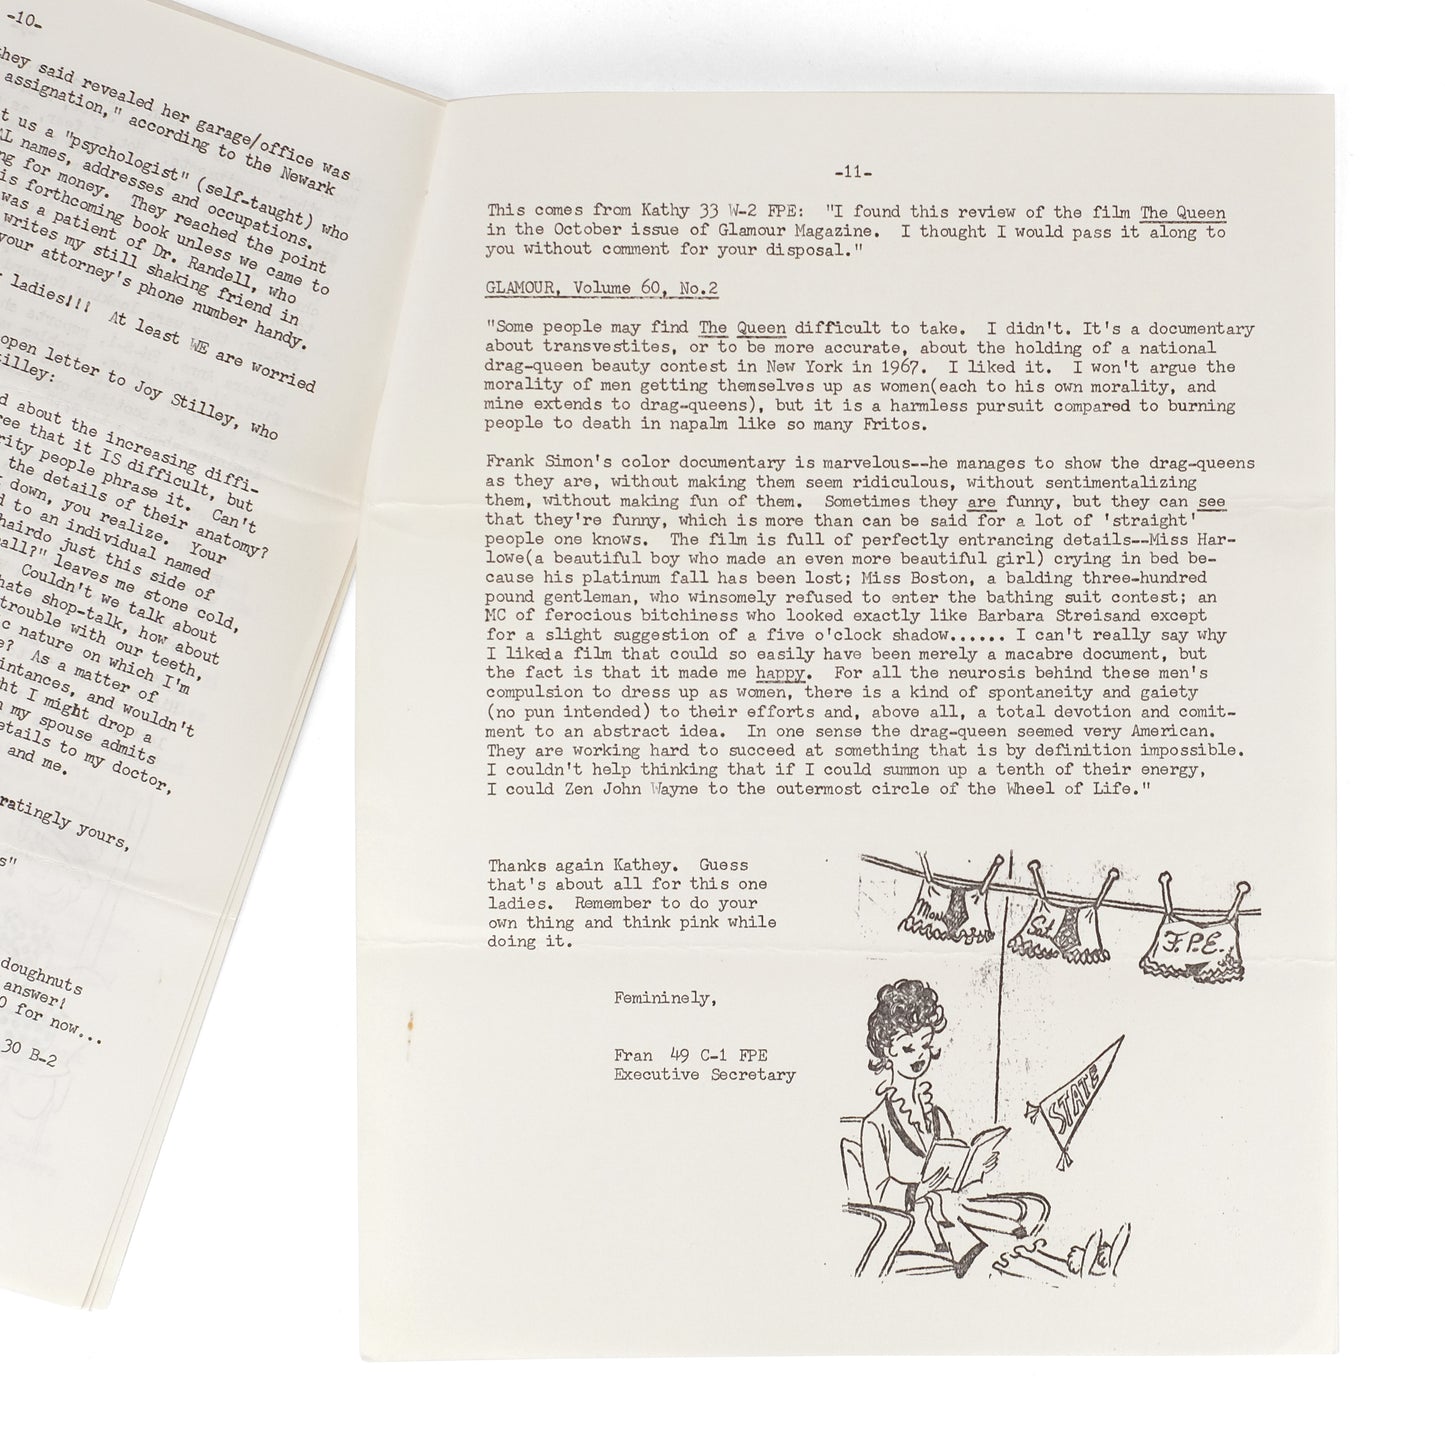 -10-
they said revealed her garage/office was
assignation," according to the Newark
t us a "psychologist" (self-taught) who
AL names, addresses and occupations.
ng for money. They reached the point
is forthcoming book unless we came to
was a patient of Dr. Randell, who
writes my still shaking friend in
your attorney's phone number handy.
ladies!!! At least WE are worried
open letter to Joy Stilley, who
tilley:
d about the increasing diffi-
ree that it IS difficult, but
rity people phrase it. Can't
the details of their anatomy?
down, you realize. Your
d to an individual named
hairdo just this side of
all?" leaves me stone cold,
Couldn't we talk about
hate shop-talk, how about
trouble with our teeth,
c nature on which I'm
e? As a matter of
intances, and wouldn't
ht I might drop a
my spouse admits
etails to my doctor,
and me.
ratingly yours,
s"
doughnuts
answer!
0 for now...
30 B-2
-11-
This comes from Kathy 33 W-2 FPE: "I found this review of the film The Queen
in the October issue of Glamour Magazine. I thought I would pass it along to
you without comment for your disposal."
GLAMOUR, Volume 60, No.2
"Some people may find The Queen difficult to take. I didn't. It's a documentary
about transvestites, or to be more accurate, about the holding of a national
drag-queen beauty contest in New York in 1967. I liked it. I won't argue the
morality of men getting themselves up as women(each to his own morality, and
mine extends to drag-queens), but it is a harmless pursuit compared to burning
people to death in napalm like so many Fritos.
Frank Simon's color documentary is marvelous--he manages to show the drag-queens
as they are, without making them seem ridiculous, without sentimentalizing
them, without making fun of them. Sometimes they are funny, but they can see
that they're funny, which is more than can be said for a lot of 'straight'
people one knows. The film is full of perfectly entrancing details--Miss Har-
lowe(a beautiful boy who made an even more beautiful girl) crying in bed be-
cause his platinum fall has been lost; Miss Boston, a balding three-hundred
pound gentleman, who winsomely refused to enter the bathing suit contest; an
MC of ferocious bitchiness who looked exactly like Barbara Streisand except
for a slight suggestion of a five o'clock shadow...... I can't really say why
I likeda film that could so easily have been merely a macabre document, but
the fact is that it made me happy. For all the neurosis behind these men's
compulsion to dress up as women, there is a kind of spontaneity and gaiety
(no pun intended) to their efforts and, above all, a total devotion and comit-
ment to an abstract idea. In one sense the drag-queen seemed very American.
They are working hard to succeed at something that is by definition impossible.
I couldn't help thinking that if I could summon up a tenth of their energy,
I could Zen John Wayne to the outermost circle of the Wheel of Life."
Thanks again Kathey. Guess
that's about all for this one
ladies. Remember to do your
own thing and think pink while
doing it.
Femininely,
Fran 49 C-1 FPE
Executive Secretary
Mon
Sat.
F.P.E.
STATE